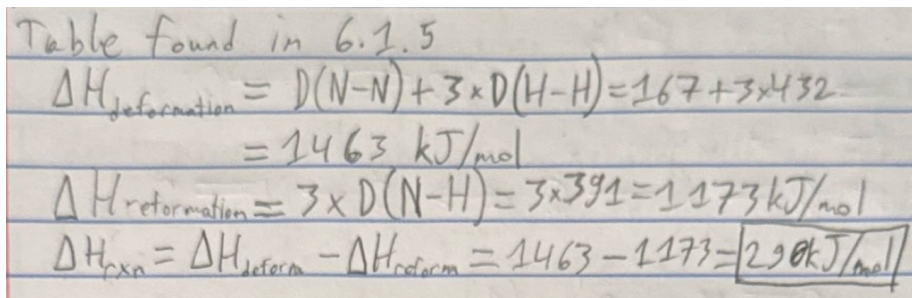 Table found in 6.1.5
ΔH_deformation = D(N-N)+3×D(H-H)=167+3×432
= 1463 kJ/mol
ΔH_reformation = 3×D(N-H)=3×391=1173kJ/mol
ΔH_rxn = ΔH_deform - ΔH_reform = 1463-1173=290kJ/mol